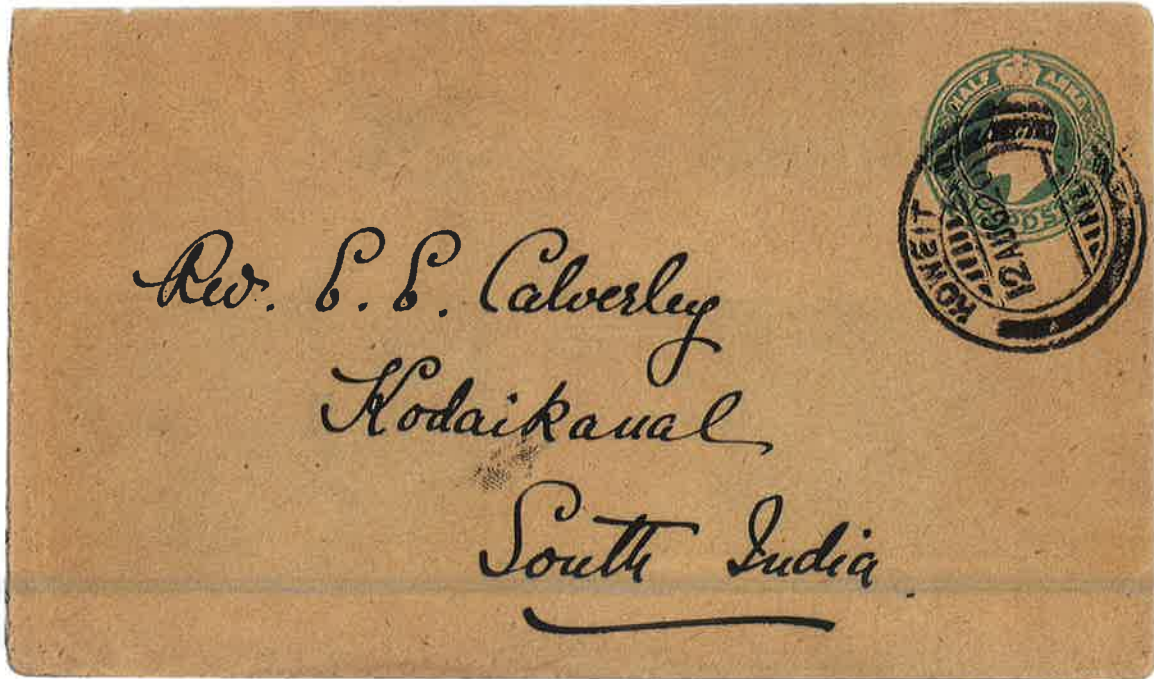 HALF ANNA
KOWEIT
12 AUG
Rev. E. E. Calverley
Kodaikanal
South India